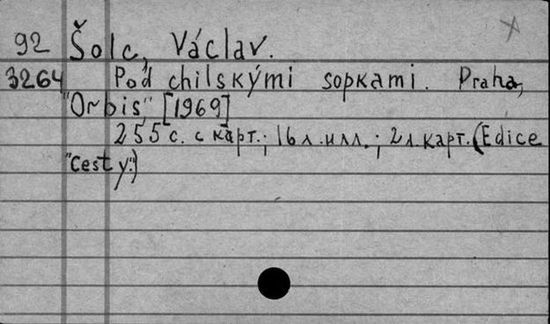 92 Šolc, Václav.
3264 Pod chilskými sopkami. Praha,
"Orbis", [1969]
255 с. с карт.; 16 л. илл.; 2 л. карт. (Edice
"Cesty".)